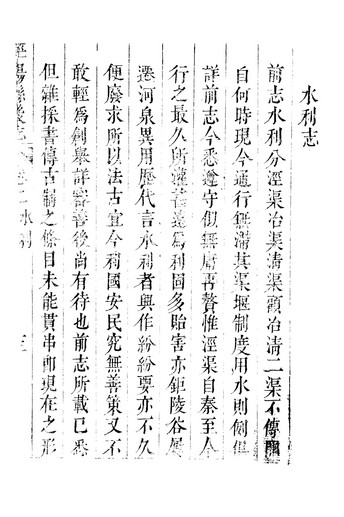 水利志
前志水利分涇渠冶渠清渠顧冶清二渠不傳闢
自何時現今通行無滯其渠堰制度用水則例俱
詳前志今悉遵守俱無庸再贅惟涇渠自秦至今
行之最久所灌甚遠為利固多貽害亦鉅陵谷屢
遷河泉異用歷代言水利者興作紛紛要亦不久
便廢求所以法古宜今利國安民究無善策又不
敢輕為創舉詳審善後尚有待也前志所載已悉
但雜採書傳古制之條目未能貫串即現在之形
水利 三